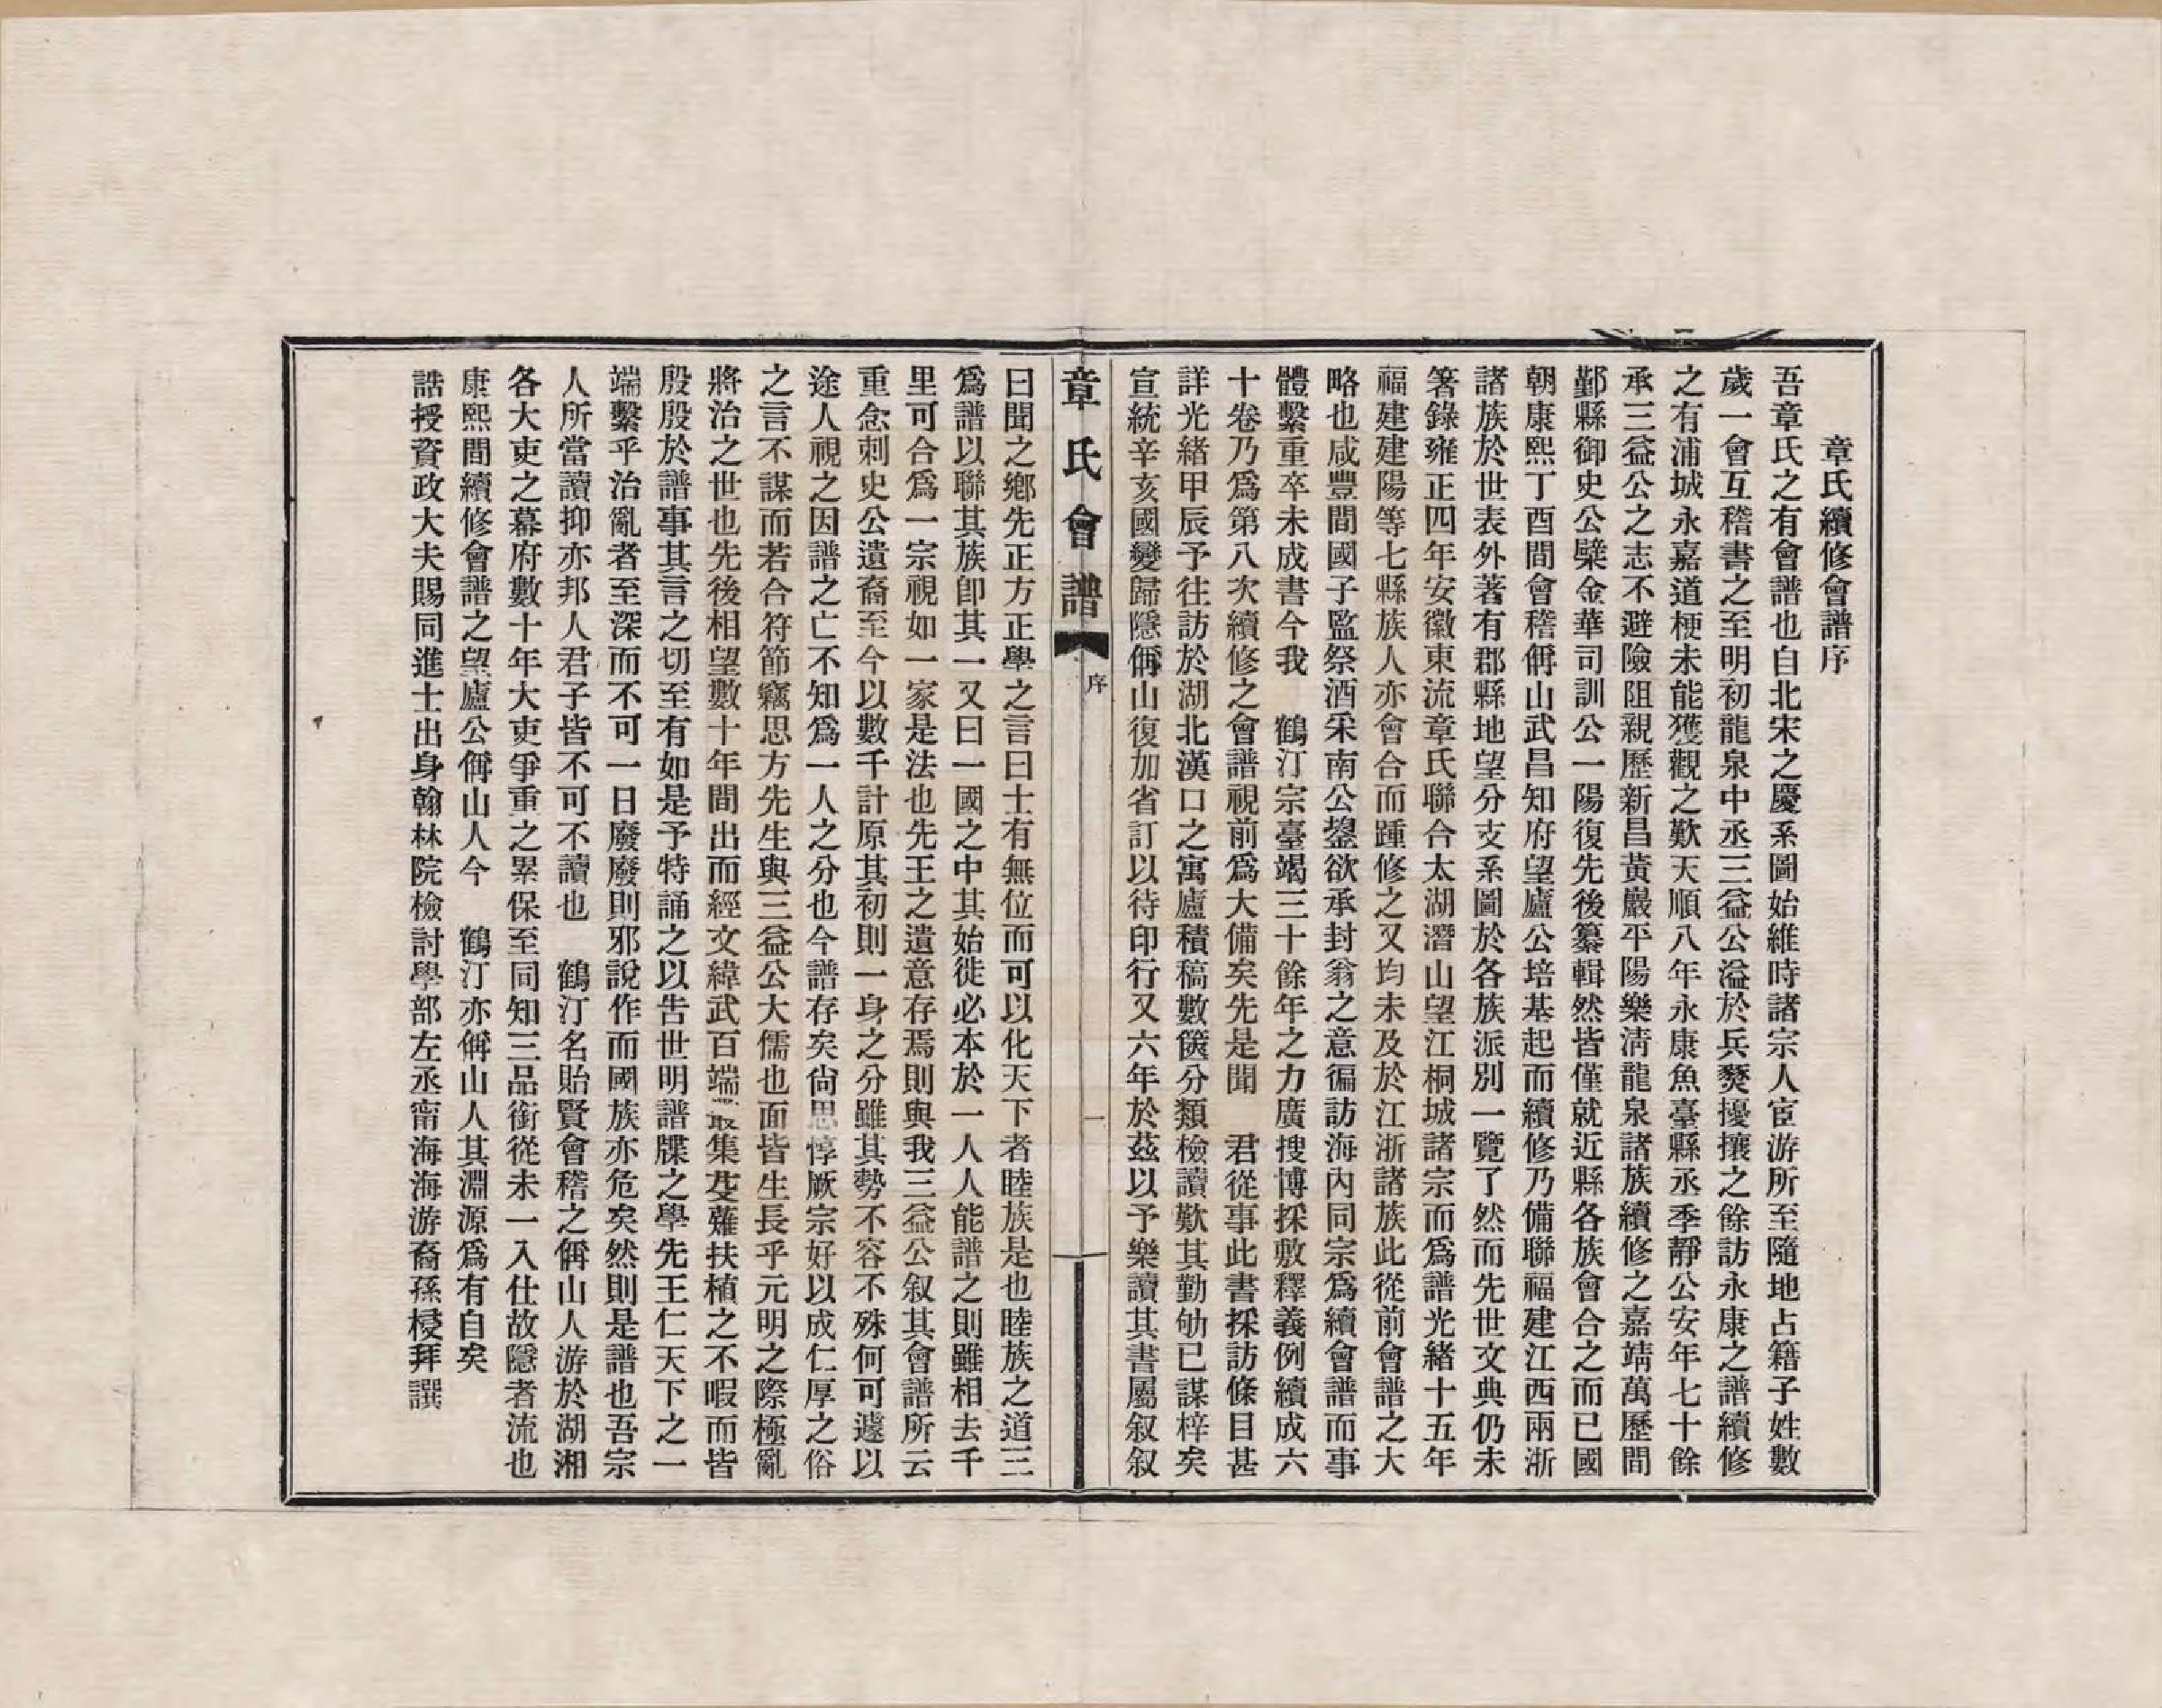 章氏續修會譜序
吾章氏之有會譜也自北宋之慶系圖始維時諸宗人宦游所至隨地占籍子姓數
歲一會互稽書之至明初龍泉中丞三益公溢於兵燹擾攘之餘訪永康之譜續修
之有浦城永嘉道梗未能獲觀之歎天順八年永康魚臺縣丞季靜公安年七十餘
承三益公之志不避險阻親歷新昌黃巖平陽樂淸龍泉諸族續修之嘉靖萬歷間
鄞縣御史公檗金華司訓公一陽復先後纂輯然皆僅就近縣各族會合之而已國
朝康熙丁酉間會稽偁山武昌知府望廬公培基起而續修乃備聯福建江西兩浙
諸族於世表外著有郡縣地望分支系圖於各族派別一覽了然而先世文典仍未
箸錄雍正四年安徽東流章氏聯合太湖潛山望江桐城諸宗而爲譜光緒十五年
福建建陽等七縣族人亦會合而踵修之又均未及於江浙諸族此從前會譜之大
略也咸豐間國子監祭酒采南公鋆欲承封翁之意徧訪海內同宗爲續會譜而事
體繫重卒未成書今我 鶴汀宗臺竭三十餘年之力廣搜博採敷釋義例續成六
十卷乃爲第八次續修之會譜視前爲大備矣先是聞 君從事此書採訪條目甚
詳光緒甲辰予往訪於湖北漢口之寓廬積稿數篋分類檢讀歎其勤劬已謀梓矣
宣統辛亥國變歸隱偁山復加省訂以待印行又六年於茲以予樂讀其書屬叙叙
章氏會譜 序 一
曰聞之鄕先正方正學之言曰士有無位而可以化天下者睦族是也睦族之道三
爲譜以聯其族卽其一又曰一國之中其始徙必本於一人人能譜之則雖相去千
里可合爲一宗視如一家是法也先王之遺意存焉則與我三益公叙其會譜所云
重念刺史公遺裔至今以數千計原其初則一身之分雖其勢不容不殊何可遽以
途人視之因譜之亡不知爲一人之分也今譜存矣尙思惇厥宗好以成仁厚之俗
之言不謀而若合符節竊思方先生與三益公大儒也面皆生長乎元明之際極亂
將治之世也先後相望數十年間出而經文緯武百端叢集芟薙扶植之不暇而皆
殷殷於譜事其言之切至有如是予特誦之以吿世明譜牒之學先王仁天下之一
端繫乎治亂者至深而不可一日廢廢則邪說作而國族亦危矣然則是譜也吾宗
人所當讀抑亦邦人君子皆不可不讀也 鶴汀名貽賢會稽之偁山人游於湖湘
各大吏之幕府數十年大吏爭重之累保至同知三品銜從未一入仕故隱者流也
康熙間續修會譜之望廬公偁山人今 鶴汀亦偁山人其淵源爲有自矣
誥授資政大夫賜同進士出身翰林院檢討學部左丞甯海海游裔孫梫拜譔